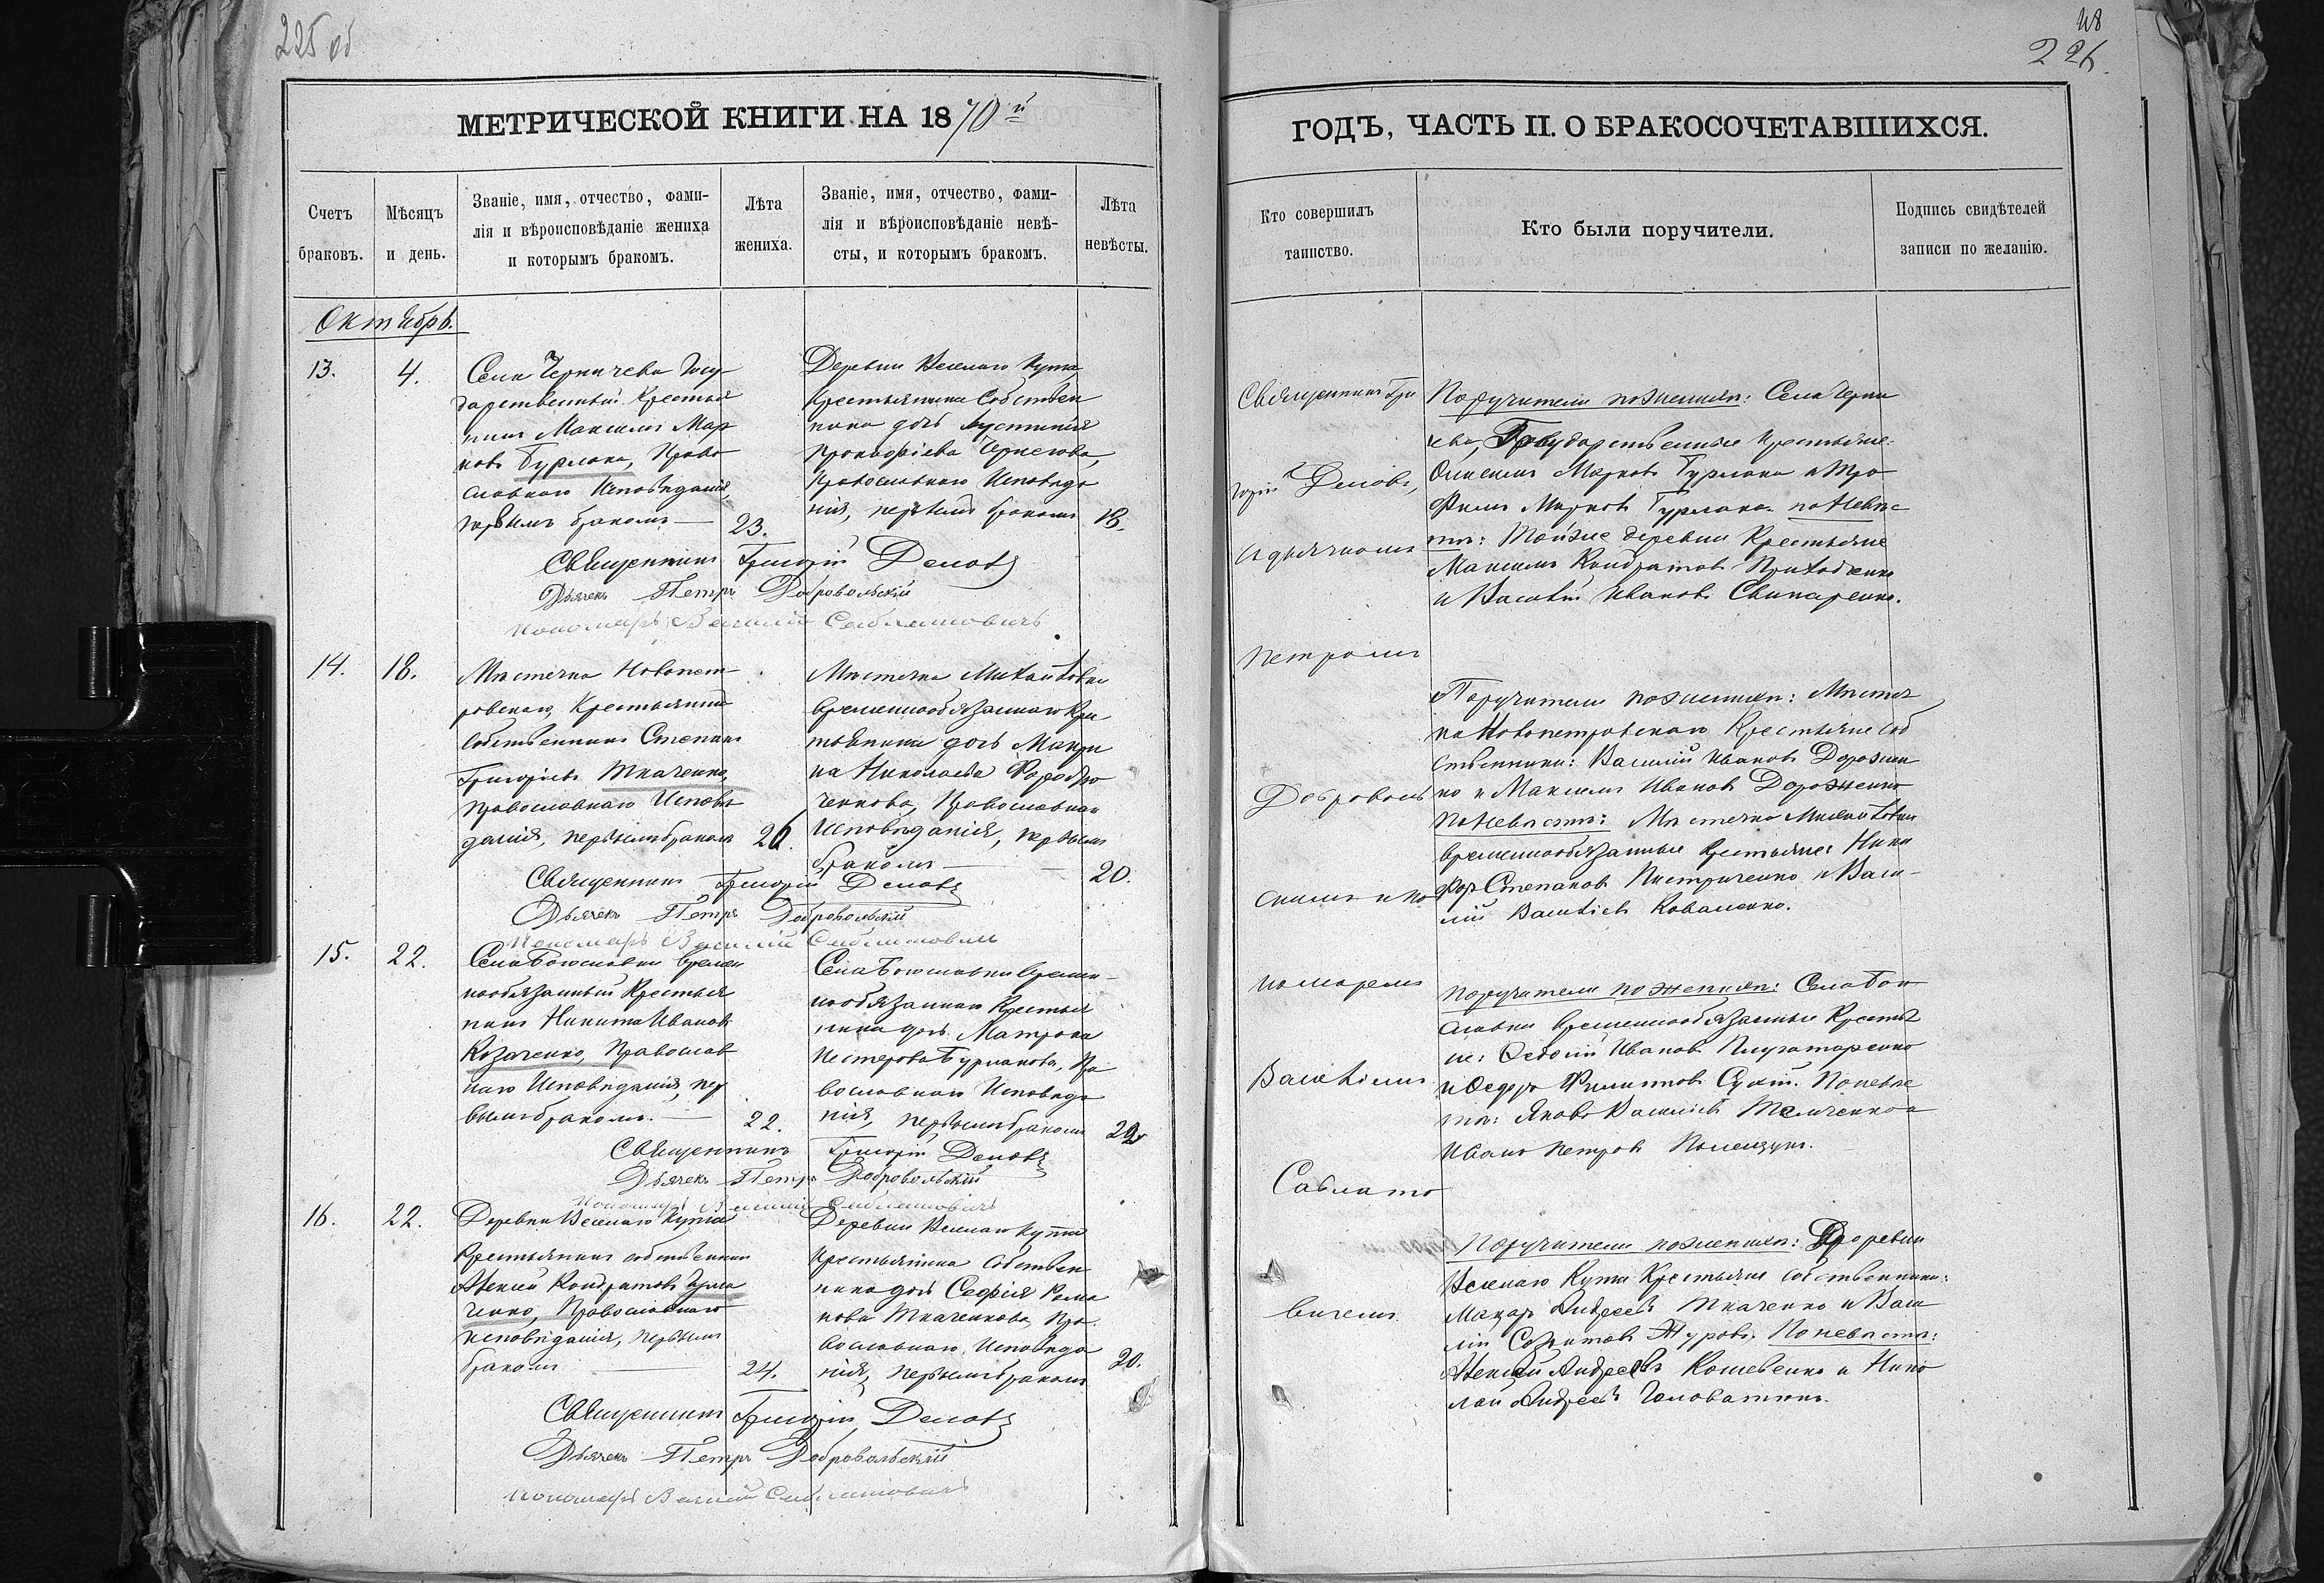 225 об
МЕТРИЧЕСКОЙ КНИГИ НА 1870й
Счетъ браковъ.
Мѣсяцъ и день.
Званіе, имя, отчество, фами-
лія и вѣроисповѣданіе жениха
и которымъ бракомъ.
Лѣта жениха.
Званіе, имя, отчество, фами-
лія и вѣроисповѣданіе невѣ-
сты, и которымъ бракомъ.
Лѣта невѣсты.
Октябрь.
13.
4.
Села Черничева Госу
дарственный Крестья
нинъ Максимъ Мар
ковъ Бурлака, Право
славнаго Исповѣданія,
первымъ бракомъ
23.
Деревни Веселаго Кута
Крестьянина Собствен
ника дочь Іустинія
Прокофіева
Православнаго Исповѣда
нія, первымъ бракомъ
18.
Священникъ Григорій
Дьячекъ Петръ Добровольскій
Пономарь Василій Саблатовичъ
14.
18.
Мѣстечка Новопет
ровскаго, Крестьянинъ
Собственникъ Степанъ
Григорьевъ Ткаченко,
Православнаго Исповѣ
данія, первымъ бракомъ
26.
Мѣстечка Михайловки
временнообязаннаго Кре
стьянина дочь Макри
на Николаева
Православнаго
Исповѣданія, первымъ
бракомъ
20.
Священникъ Григорій
Дьячекъ Петръ Добровольскій
Пономарь Василій Саблатовичъ
15.
22.
Села Богословки времен
нообязанный Крестья
нинъ Никита Ивановъ
Козаченко, Православ
наго Исповѣданія, пер
вымъ бракомъ.
22.
Села Богословки времен-
нообязаннаго Крестья
нина дочь Матрона
Нестерова Бурлакова, Пра
вославнаго Исповѣда
нія, первымъ бракомъ
22
Священникъ Григорій
Дьячекъ Петръ Добровольскій
Пономарь Василій Саблатовичъ
16.
22.
Деревни Веселаго Кута
Крестьянинъ собственникъ
Алексѣй Кондратовъ
Православнаго
исповѣданія, первымъ
бракомъ
24.
Деревни Веселаго Кута
Крестьянина Собствен
ника дочь Софія Рома
нова Ткаченкова, Пра
вославнаго Исповѣда
нія, первымъ бракомъ
20.
Священникъ Григорій
Дьячекъ Петръ Добровольскій
Пономарь Василій Саблатовичъ
226.
ГОДЪ, ЧАСТЬ II. О БРАКОСОЧЕТАВШИХСЯ.
Кто совершилъ таинство.
Кто были поручители.
Подпись свидѣтелей
записи по желанію.
Священникъ Гри
горій
съ дьячкомъ
Петромъ
Доброволь
скимъ и по
номаремъ
Василіемъ
Саблато
вичемъ.
Поручители по женихѣ: Села Черни
чева, Государственные Крестьяне:
Марковъ Бурлака и Тро
фимъ Марковъ Бурлака. по Невѣс
тѣ: Той же деревни Крестьяне
Максимъ Кондратовъ Приходченко
и Василій Ивановъ Свинаренко.
Поручители по женихѣ: Мѣстеч
ка Новопетровскаго Крестьяне Соб
ственники: Василій Ивановъ Дорожен
ко и Максимъ Ивановъ Дороженко
по Невѣстѣ: Мѣстечка Михайловки
временнообязанные Крестьяне: Ники
форъ Степановъ и Васи-
лій Васильевъ Коваленко.
Поручители по женихѣ: Села Бого
словки временнообязанные Крестья
не: Ивановъ
и Ѳедоръ Филиповъ Сухій. По невѣс
тѣ: Яковъ Васильевъ и
Иванъ Петровъ Полещукъ.
Поручители по женихѣ: Деревни
Веселаго Кута Крестьяне собственники:
Макаръ Андреевъ Ткаченко и Васи
лій По невѣстѣ:
Алексѣй Андреевъ Кошевенко и Нико
лай Андреевъ Головатинъ.